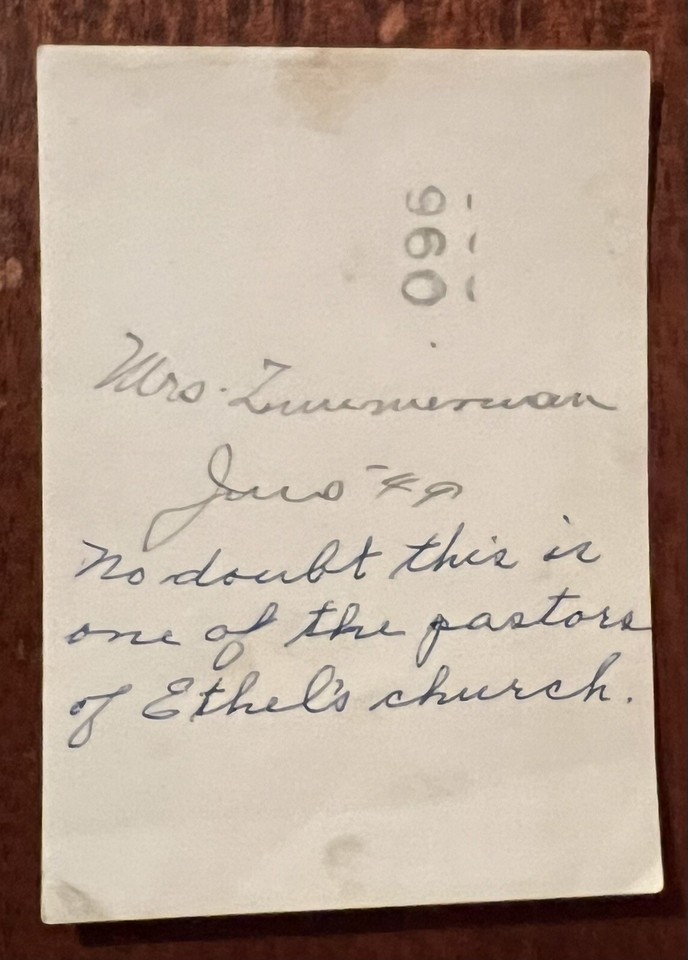 960
Mrs. Zimmerman
No doubt this is
one of the pastors
of Ethel's church.